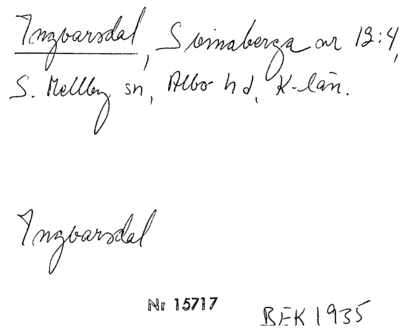 Ingvarsdal, Svinaberga ar 12:4,
S. Mellby sn, Albo hd, K-län.
Ingvarsdal
Nr 15717
BEK 1935